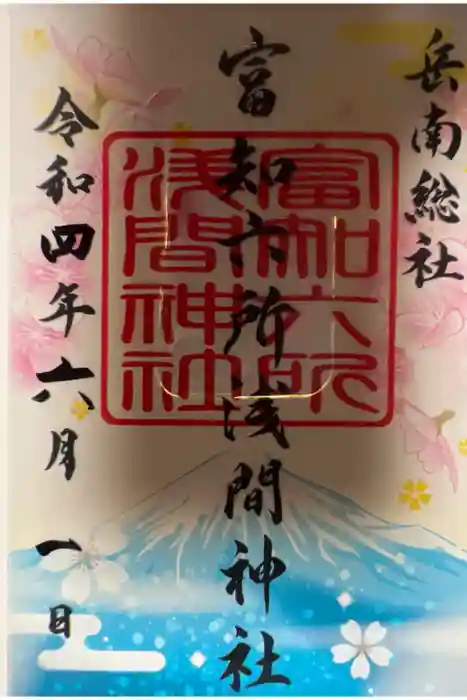 岳南総社
富知六所浅間神社
富知六所
浅間神社
令和四年六月一日